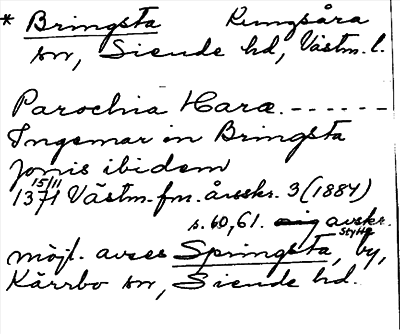 * Bringsta Kungsåra
sn, Siende hd, Västm. l.
Parochia Hara. ------
Ingemar in Bringsta
Jonis ibidem
15/11
1371 Västm. fm. årsskr. 3 (1884)
s. 60, 61. avskr.
Styffe
möjl. avses Springsta, by,
Kärrbo sn, Siende hd.